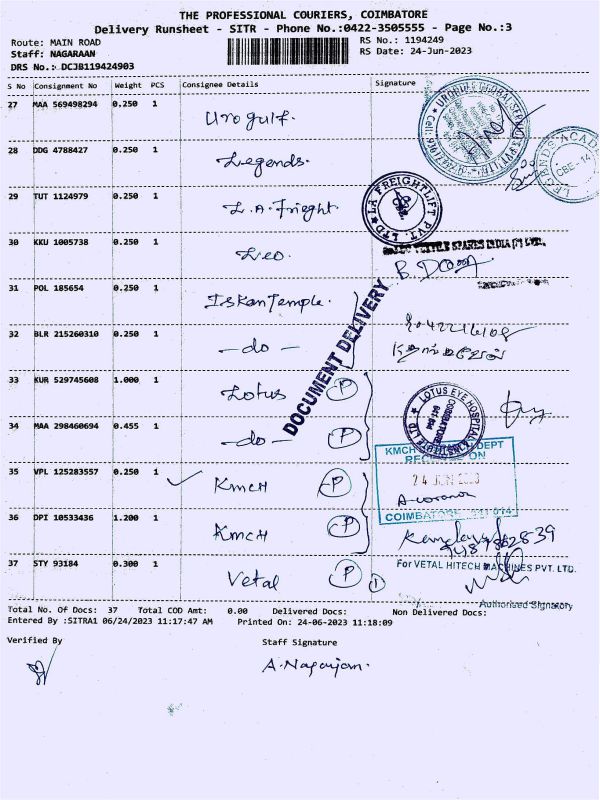 THE PROFESSIONAL COURIERS, COIMBATORE
Delivery Runsheet - SITR - Phone No.:0422-3505555 - Page No.:3
Route: MAIN ROAD
RS No.: 1194249
Staff: NAGARAAN
RS Date: 24-Jun-2023
DRS No.: DCJB119424903
S No Consignment No Weight PCS Consignee Details Signature
27 MAA 569498294 0.250 1 Urogulf.
28 DDG 4788427 0.250 1 Legends.
29 TUT 1124979 0.250 1 L.A. Frieght.
LA FREIGHTLIFT PVT. LTD
30 KKU 1005738 0.250 1 Leo.
TEXTILE SPARES INDIA (P) LTD.
31 POL 185654 0.250 1 Iskan Temple.
DOCUMENT DELIVERY
32 BLR 215260310 0.250 1 - do -
33 KUR 529745608 1.000 1 Lotus P
LOTUS EYE HOSPITAL
COIMBATORE
641 014
34 MAA 298460694 0.455 1 - do - P
35 VPL 125283557 0.250 1 KMCH P
KMCH DEPT
24 JUN 2023
COIMBATORE - 641 014
36 DPI 10533436 1.200 1 KMCH P
37 STY 93184 0.300 1 Vetal P 1
For VETAL HITECH MACHINES PVT. LTD.
Authorised Signatory
Total No. Of Docs: 37 Total COD Amt: 0.00 Delivered Docs: Non Delivered Docs:
Entered By :SITRA1 06/24/2023 11:17:47 AM Printed On: 24-06-2023 11:18:09
Verified By Staff Signature
A. Nagarjan.